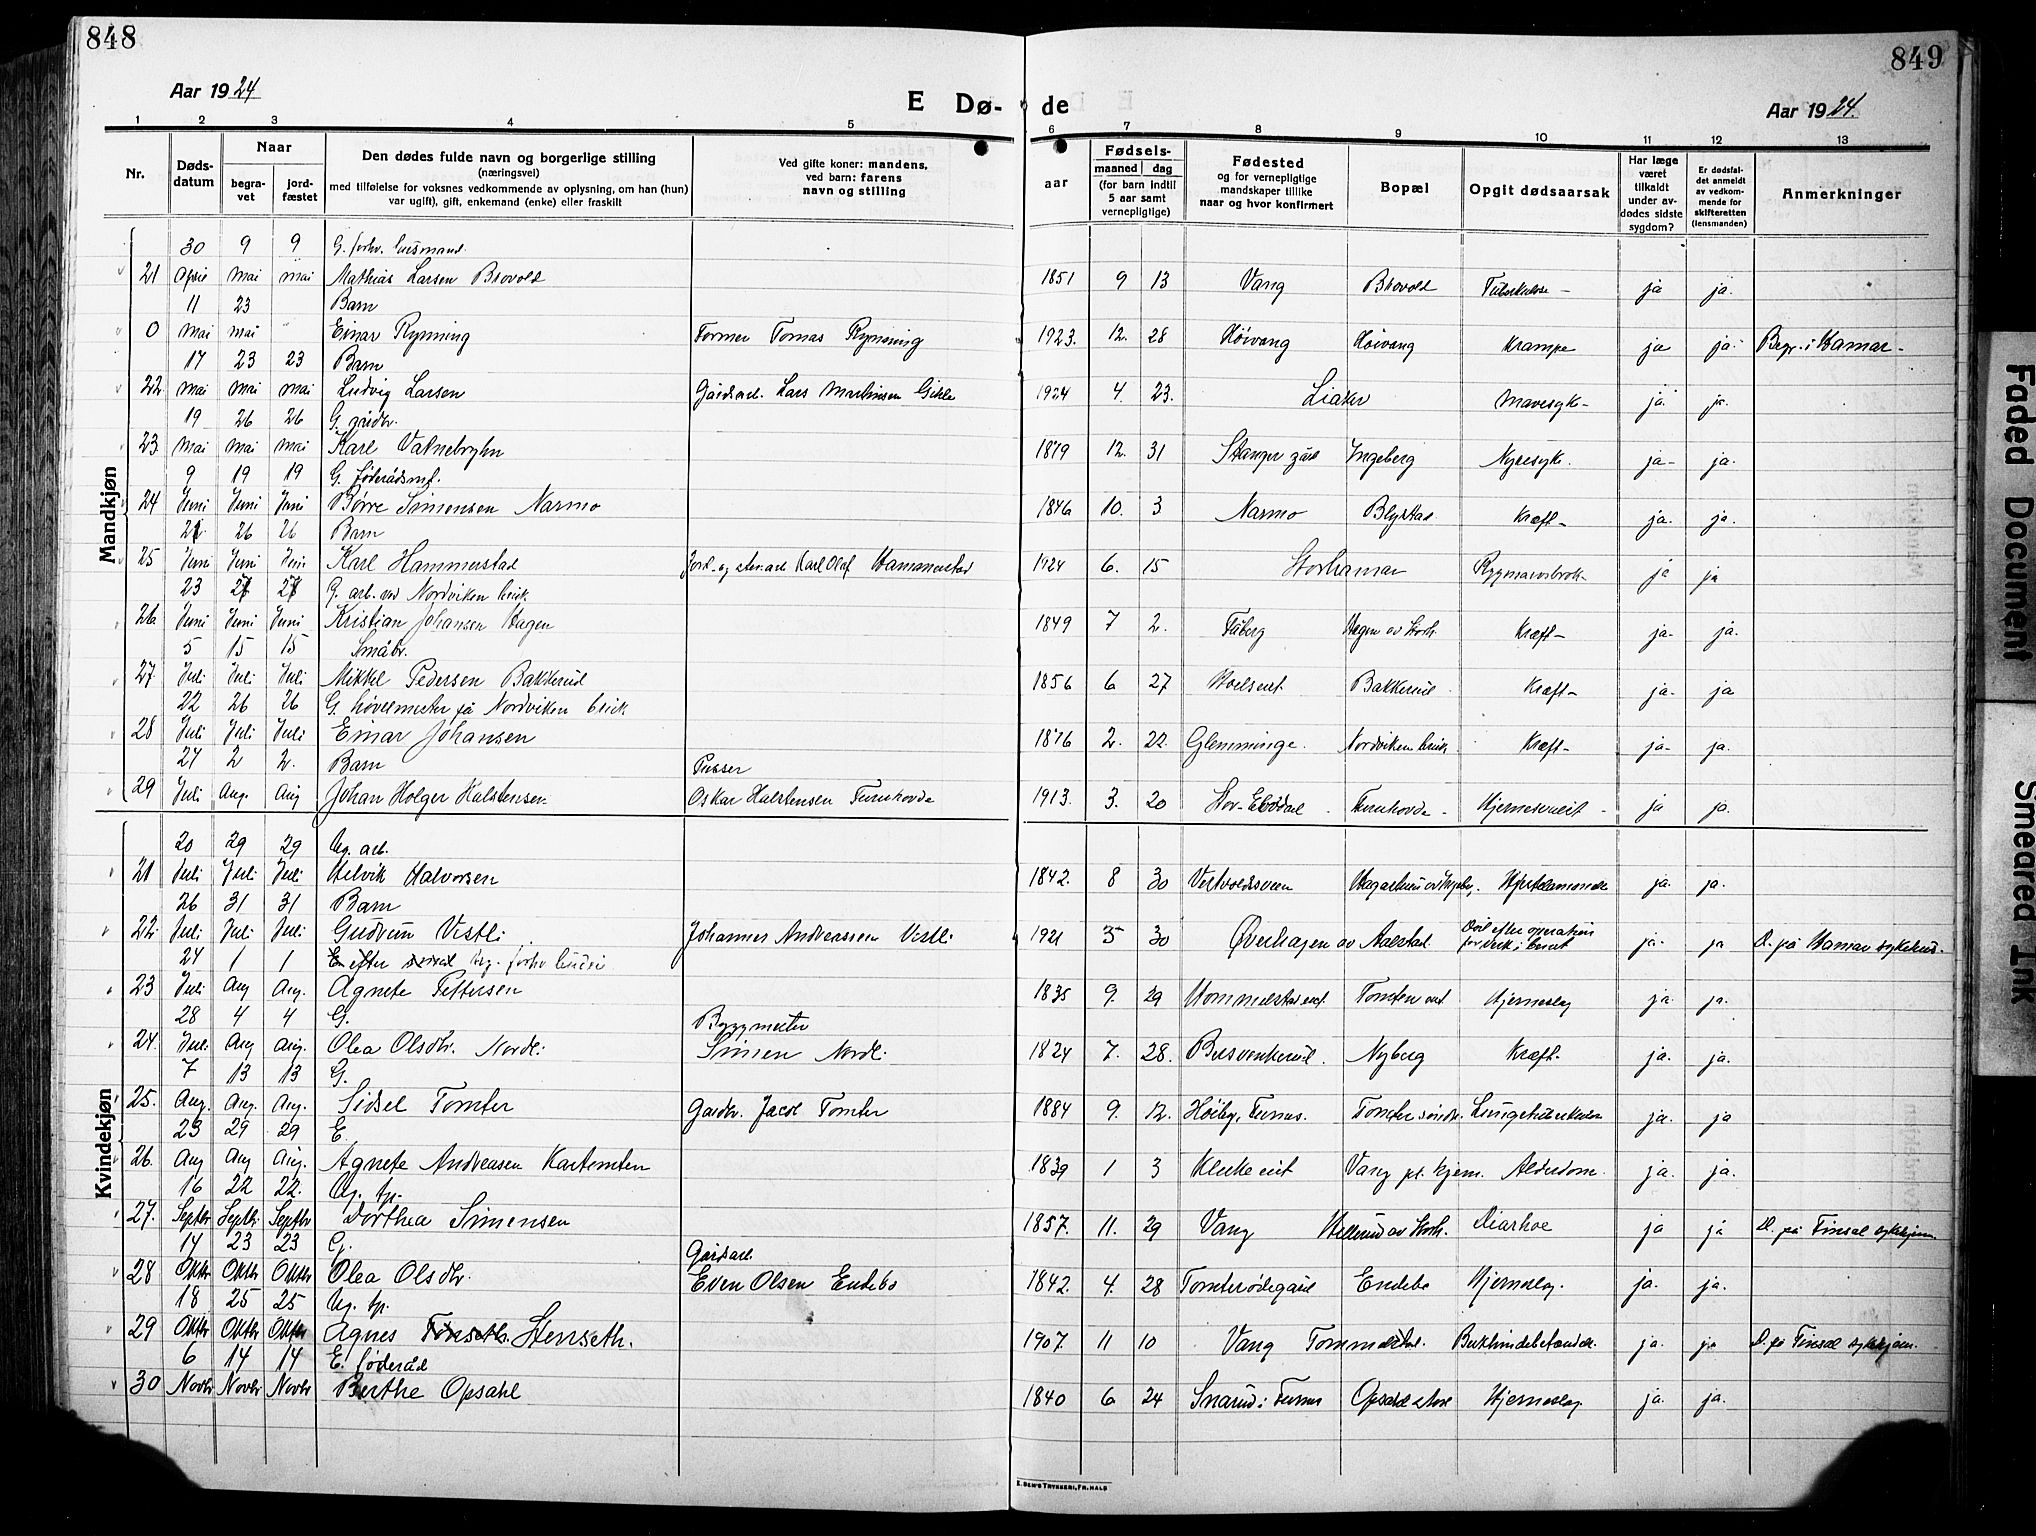 848
849
Aar 1924
E Dø-
de
Aar 1924.
1 2 3 4 5 6 7 8 9 10 11 12 13
Nr.
Døds-
datum
Naar
begra-
vet
jord-
fæstet
Den dødes fulde navn og borgerlige stilling
(næringsvei)
med tilføielse for voksnes vedkommende av oplysning, om han (hun)
var ugift), gift, enkemand (enke) eller fraskilt
Ved gifte koner: mandens,
ved barn: farens
navn og stilling
Fødsels-
aar
maaned dag
(for barn indtil
5 aar samt
vernepligtige)
Fødested
og for vernepligtige
mandskaper tillike
naar og hvor konfirmert
Bopæl
Opgit dødsaarsak
Har læge
været
tilkaldt
under av-
dødes sidste
sygdom?
Er dødsfal-
det anmeldt
av vedkom-
mende for
skifteretten
(lensmanden)
Anmerkninger
Mandkjøn
30 9 9 G. forhv. husmand.
21 April mai mai Mathias Larsen Brovold 1851 9 13 Vang Brovold Tuberkulose - ja ja.
11 23 Barn
0 mai mai Einar Rynning Former Tomas Rynning 1923. 12. 28 Høivang Høivang Krampe ja ja. Begr. i Hamar.
17 23 23 Barn
22 mai mai mai Ludvig Larsen Gårdsarb. Lars Martinsen Gihle 1924 4. 23. Liaker Mavesyk- ja. ja.
19 26 26 G. gårdbr.
23. mai mai mai Karl Vatnebryhn 1879 12. 31 Stanger Ingeberg Nyresyk. ja- ja.
9 19 19 G. føderådsm.
24 Juni Juni Juni Børre Simensen Narmo 1846 10. 3 Narmo Blystad Kræft- ja. ja.
21. 26 26 Barn
25 Juni Juni Juni Karl Hammerstad Jord- og sten.arb Karl Olaf Hammerstad 1924 6. 15 Storhamar Rygmarvsbrok- ja ja
23 27 27 G. arb. ved Nordviken bruk
26 Juni Juni Juni Kristian Johansen Hagen 1849 7 2. Fåberg Hagen av Storh. Kræft- ja- ja.
5 15 15 Småbr.
27. Juli Juli Juli Mikkel Pedersen Bakkerud 1856 6 27 Bakkerud Kræft- ja- ja
22 26 26 G. høvelmester på Nordviken bruk
28 Juli Juli Juli Einar Johansen 1876 2. 22. Glemminge. Nordviken bruk. Kræft- ja- ja.
27 2 2. Barn Pusser
29 Juli Aug. Aug Johan Holger Halstensen Oskar Halstensen Furuhovde 1913. 3. 20 Furuhovde - ja ja.
Kvindekjøn
20 29 29 Ug. arb.
21 Juli Juli Juli Helvik Halvorsen 1842. 8 30 Vestvoldsveen ja. ja.
26 31 31 Barn
22. Juli Juli Juli Gudrun Vestli Johannes Andreassen Vestli 1921 5 30 Øverhagen av Aalstad. Død efter operation for ja. ja D. på Hamar sykehus.
24 1 1 Ug. forhv
23 Juli Aug Aug. Agnete Pettersen 1835 9. 29 Hommelstad eiet. Tomten eiet. Hjerneslag ja. ja.
28 4 4 G. Byggmester
24. Juli Aug Aug. Olea Olsdtr. Nordli Simen Nordli 1824 7. 28. Busvenkerud. Nyberg Kræft. ja. ja.
7 13 13 G.
25. Aug. Aug. Aug. Sidsel Tomter Gaardbr. Jacob Tomter 1884 9. 12. Høiby, Furnes. Tomter søndr. Lungetuberkulose ja. ja
23 29 29 E.
26. Aug Aug Aug. Agnete Andreasen 1839 1 3 Vang pl. hjem. Alderdom. ja. ja.
16 22 22. Ug. tp.
27. Septbr Septbr Septbr Dorthea Simensen 1857. 11. 29 Vang Hellerud av Storh. Diarhoe ja ja D. på Finsal sykehjem
14 23 23 G. Gårdsarb.
28 Oktbr Oktbr Oktbr Olea Olsdtr. Even Olsen Endebo 1842. 4. 28 Tomterødegård Endebo Hjerneslag. ja. ja.
18 25 25 Ug. tp.
29 Oktbr Oktbr Oktbr Agnes Stenseth. 1907. 11 10 Vang Tommelstad. Bukhindebetændelse ja. ja D. på Finsal sykehjem.
6 14 14 E. føderåd
30 Novbr Novbr Novbr Berthe Opsahl 1840 6 24 Snarud i Furnes Opsahl Hjerneslag ja. ja.
E. SEM'S TRYKKERI, FR.HALD
Faded Document
Smeared Ink